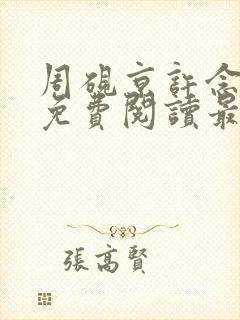 周硯京許念
免費閱讀最
張高賢